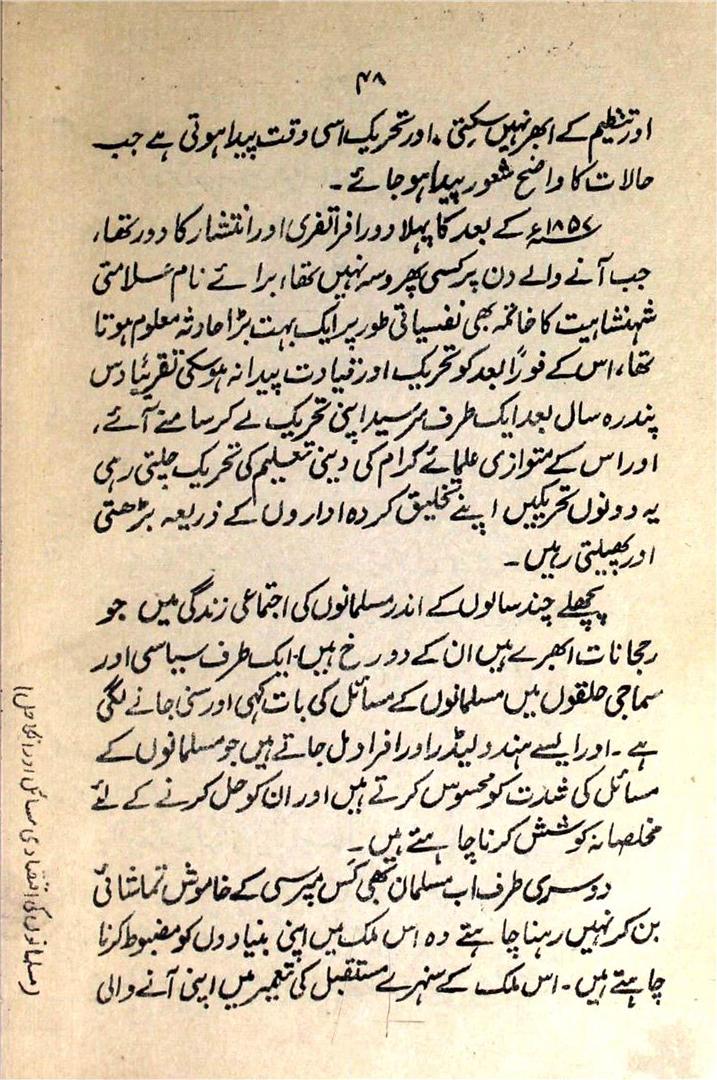 ۴۸
اور تنظیم کے ابھر نہیں سکتی۔ اور تحریک اسی وقت پیدا ہوتی ہے جب
حالات کا واضح شعور پیدا ہو جائے۔
۱۸۵۷ء کے بعد کا پہلا دور افراتفری اور انتشار کا دور تھا،
جب آنے والے دن پر کسی بھروسہ نہیں تھا، برائے نام سلامتی
شہنشاہیت کا خاتمہ بھی نفسیاتی طور پر ایک بہت بڑا حادثہ معلوم ہوتا
تھا، اس کے فوراً بعد کو تحریک اور قیادت پیدا نہ ہو سکی تقریباً دس
پندرہ سال بعد ایک طرف سر سید اپنی تحریک لے کر سامنے آئے،
اور اس کے متوازی علمائے کرام کی دینی تعلیم کی تحریک چلتی رہی
یہ دونوں تحریکیں اپنے تخلیق کردہ اداروں کے ذریعہ بڑھتی
اور پھیلتی رہیں۔
پچھلے چند سالوں کے اندر مسلمانوں کی اجتماعی زندگی میں جو
رجحانات ابھرے ہیں ان کے دو رخ ہیں۔ ایک طرف سیاسی اور
سماجی حلقوں میں مسلمانوں کے مسائل کی بات کہی اور سنی جانے لگی
ہے۔ اور ایسے ہندو لیڈر اور افراد مل جاتے ہیں جو مسلمانوں کے
مسائل کی شدت کو محسوس کرتے ہیں اور ان کو حل کرنے کے لئے
مخلصانہ کوشش کرنا چاہتے ہیں۔
دوسری طرف اب مسلمان بھی کس مپرسی کے خاموش تماشائی
بن کر نہیں رہنا چاہتے وہ اس ملک میں اپنی بنیادوں کو مضبوط کرنا
چاہتے ہیں۔ اس ملک کے سنہرے مستقبل کی تعمیر میں اپنی آنے والی
(مسلمانوں کی اقتصادی مسائل اور انکا حل)